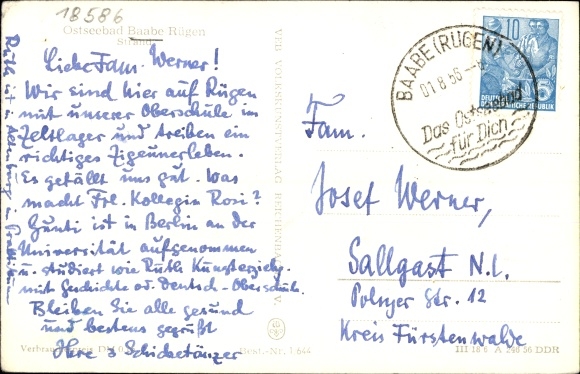 18586
Ostseebad Baabe Rügen
Strand
Liebe Fam. Werner!
Wir sind hier auf Rügen
mit unserer Oberschule im
Zeltlager und treiben ein
richtiges Zigeunerleben.
Es gefällt uns gut. Was
macht Frl. Kollegin Rosi?
Gunti ist in Berlin an der
Universität aufgenommen
u. studiert wie Ruth Kunsterziehg.
mit Geschichte od. Deutsch - Oberschule.
Bleiben Sie alle gesund
und bestens gegrüßt
Ihre 3 Schicketänzer
Ruth ist in Altenburg in Praktikum
Best.-Nr. 1 644
BAABE (RÜGEN)
01.8.56
Das Ostseebad
für Dich
10
DEUTSCHE DEMOKRATISCHE REPUBLIK
Fam.
Josef Werner,
Sallgast N.L.
Polsyer Str. 12
Kreis Fürstenwalde
III 18 6 A 246 56 DDR